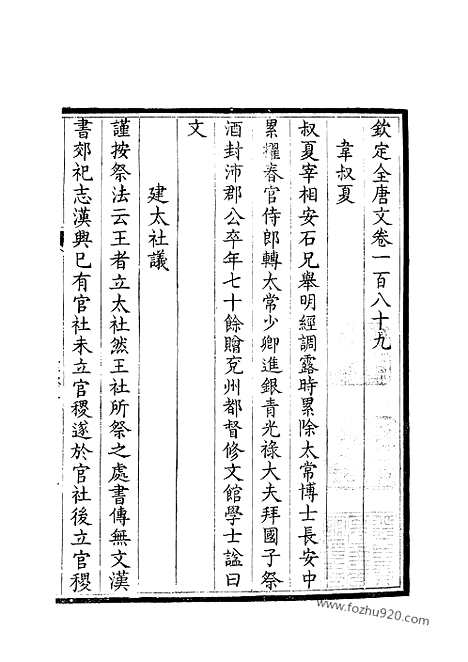 欽定全唐文卷一百八十九
韋叔夏
叔夏宰相安石兄舉明經調露時累除太常博士長安中
累擢春官侍郎轉太常少卿進銀青光祿大夫拜國子祭
酒封沛郡公卒年七十餘贈兗州都督修文館學士諡曰
文
建太社議
謹按祭法云王者立太社然王社所祭之處書傳無文漢
書郊祀志漢興已有官社未立官稷遂於官社後立官稷
www.fozhu920.com